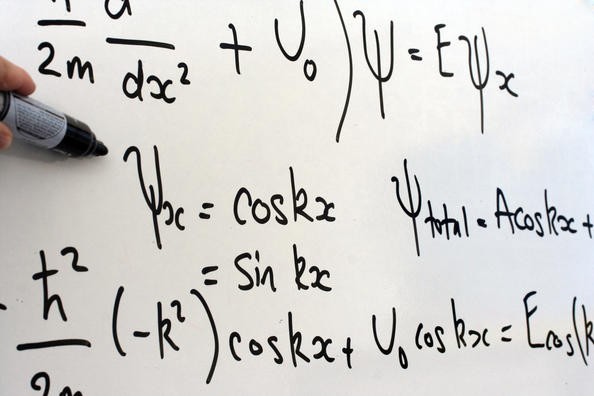 ħ/2m d/dx² + U₀)ψ = Eψₓ
ψₓ = coskx
= sin kx
ψtotal = Acoskx +
- ħ²/2m (-k²) coskx + U₀ coskx = Ecos(k